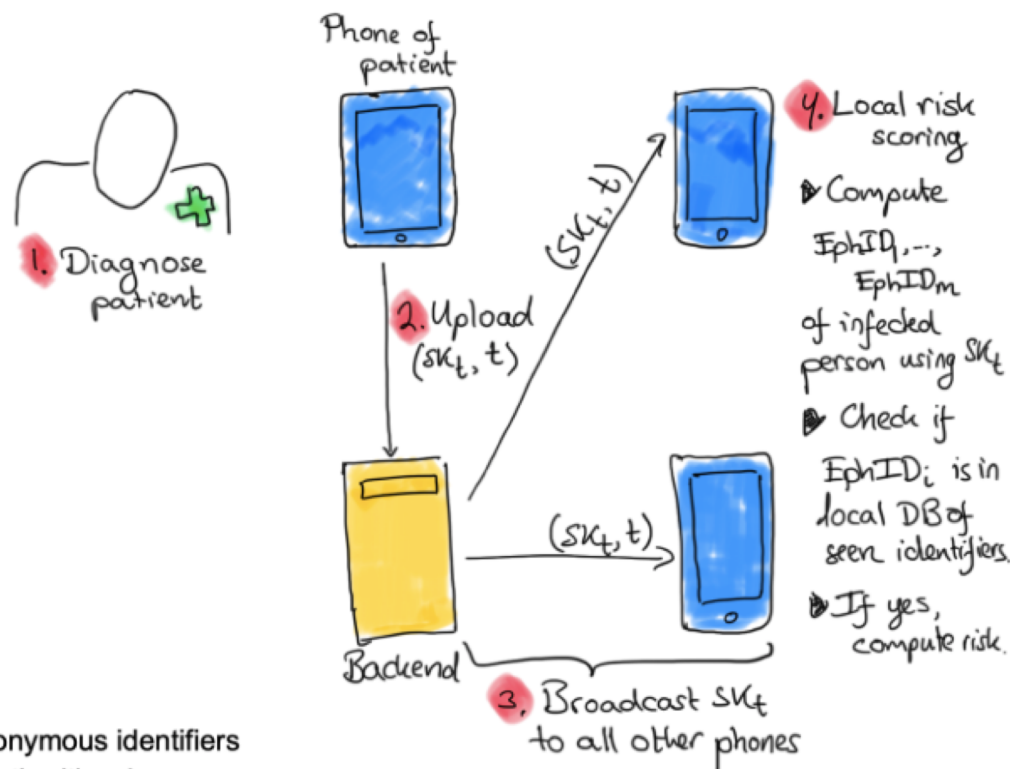 Phone of
patient
1. Diagnose
patient
2. Upload
(SKt, t)
(SKt, t)
(SKt, t)
Backend
3. Broadcast SKt
to all other phones
4. Local risk
scoring
Compute
EphID1, ...,
EphIDm
of infected
person using SKt
Check if
EphIDi is in
local DB of
seen identifiers.
If yes,
compute risk.
onymous identifiers